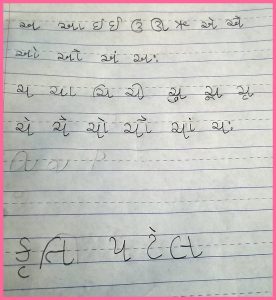 અ આ ઇ ઈ ઉ ઊ ઋ એ ઐ
ઓ ઔ અં અઃ
ચ ચા ચિ ચી ચુ ચૂ ચૃ
ચે ચૈ ચો ચૌ ચાં ચઃ
કૃતિ પટેલ